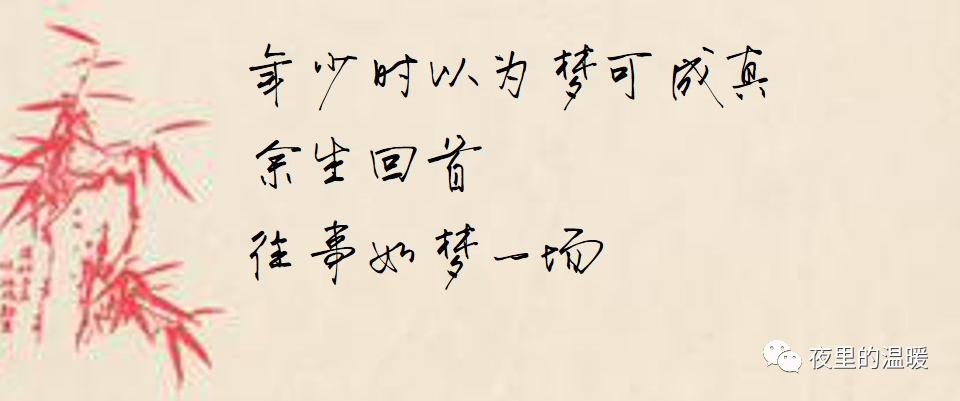 年少时以为梦可成真
余生回首
往事如梦一场
夜里的温暖